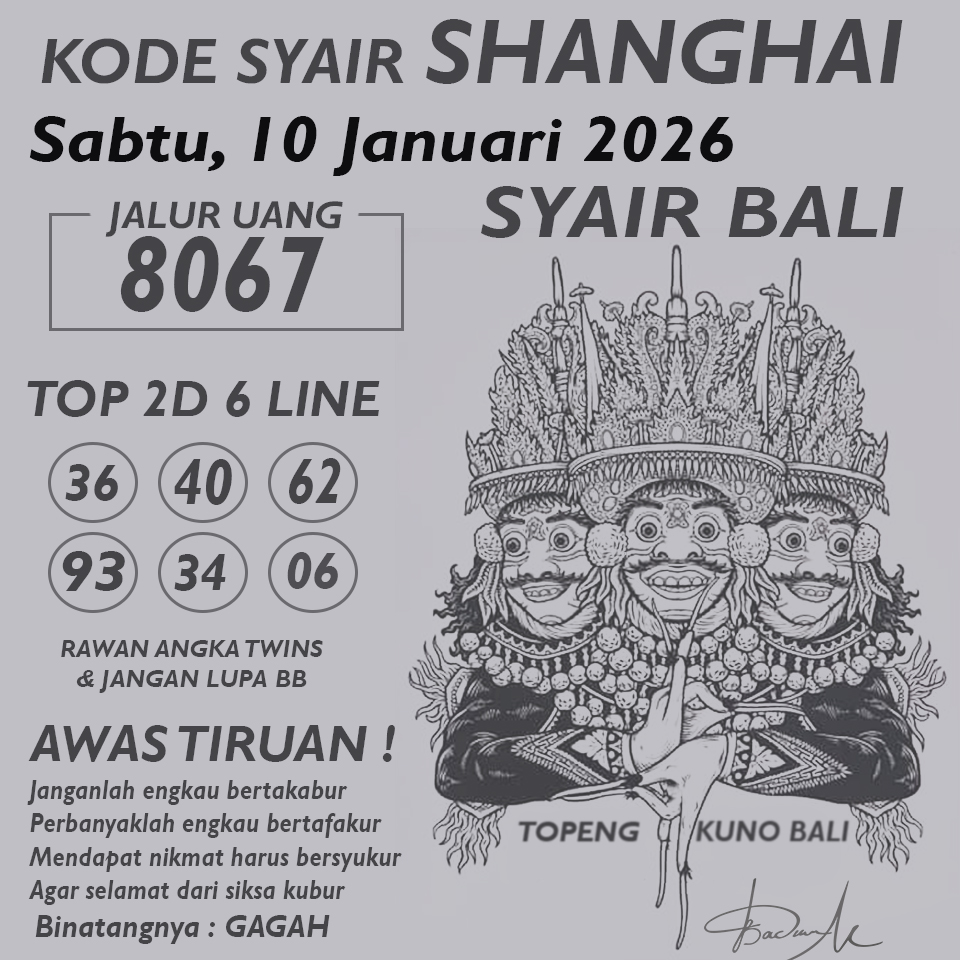 KODE SYAIR SHANGHAI
Sabtu, 10 Januari 2026
SYAIR BALI
JALUR UANG
8067
TOP 2D 6 LINE
36 40 62
93 34 06
RAWAN ANGKA TWINS
& JANGAN LUPA BB
AWAS TIRUAN !
Janganlah engkau bertakabur
Perbanyaklah engkau bertafakur
Mendapat nikmat harus bersyukur
Agar selamat dari siksa kubur
Binatangnya : GAGAH
TOPENG KUNO BALI